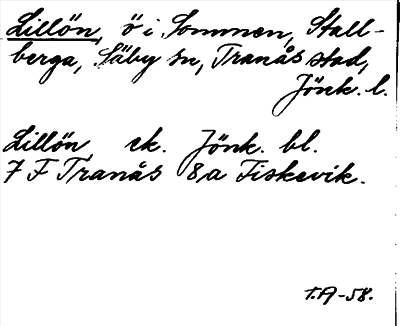 Lillön, ö i Sommen, Stall-
berga, Säby sn, Tranås stad,
Jönk. l.
Lillön ek. Jönk. bl.
7 F Tranås 8a Fiskevik.
T.A-58.